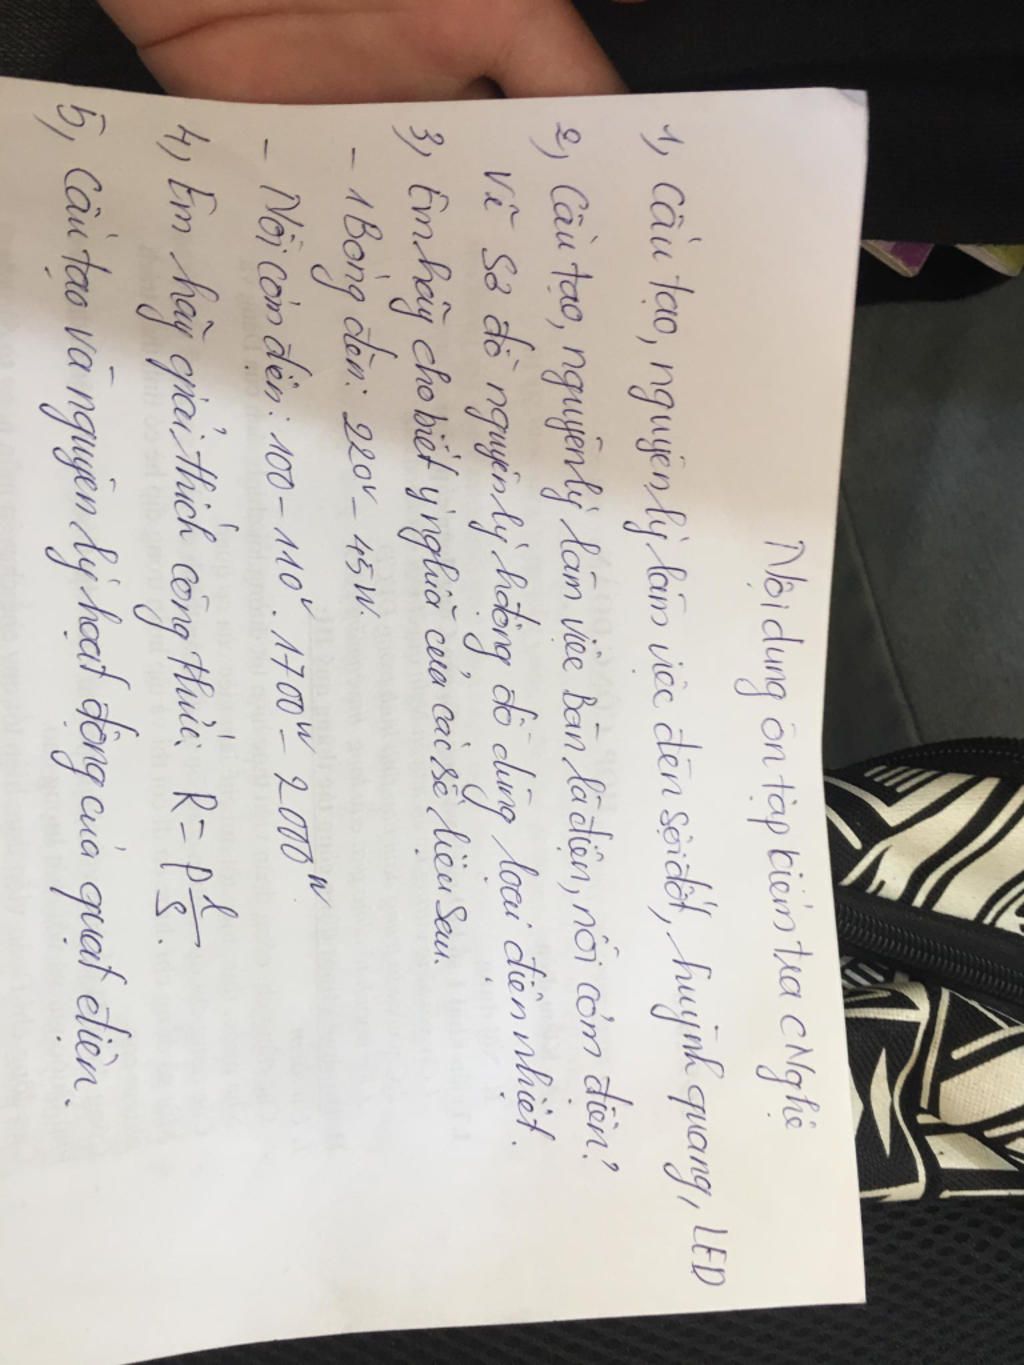 Nội dung ôn tập kiểm tra CNghệ
1, Cấu tạo, nguyên lý làm việc đèn sợi đốt, huỳnh quang, LED
2, Cấu tạo, nguyên lý làm việc bàn là điện, nồi cơm điện?
Vẽ sơ đồ nguyên lý hđộng đồ dùng loại điện nhiệt.
3, Em hãy cho biết ý nghĩa của các số liệu sau.
- 1 Bóng đèn: 220V - 45W.
- Nồi cơm điện: 100 - 110V. 1700W - 2000W.
4, Em hãy giải thích công thức: R = ρ l/S.
5, Cấu tạo và nguyên lý hoạt động của quạt điện.